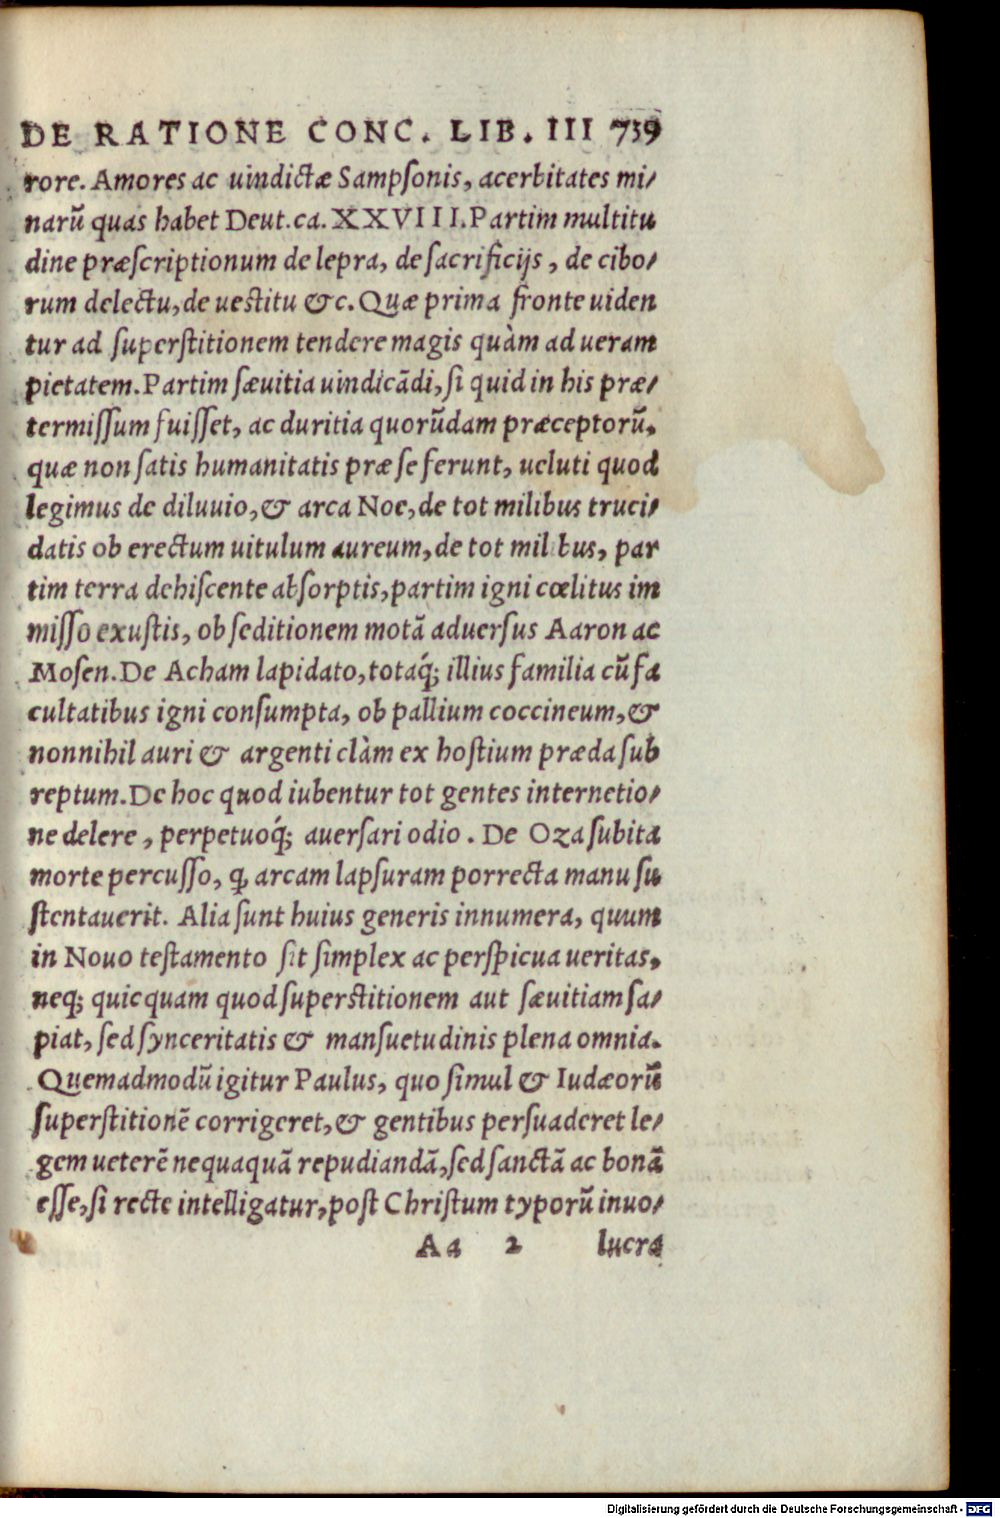 DE RATIONE CONC. LIB. III 739
rore. Amores ac uindictæ Sampsonis, acerbitates mi/
narũ quas habet Deut. ca. XXVIII. Partim multitu
dine præscriptionum de lepra, de sacrificijs, de cibo/
rum delectu, de uestitu &c. Quæ prima fronte uiden
tur ad superstitionem tendere magis quàm ad ueram
pietatem. Partim sæuitia uindicãdi, si quid in his præ/
termissum fuisset, ac duritia quorũdam præceptorũ,
quæ non satis humanitatis præ se ferunt, ueluti quod
legimus de diluuio, & arca Noe, de tot milibus truci/
datis ob erectum uitulum aureum, de tot milibus, par
tim terra dehiscente absorptis, partim igni cœlitus im
misso exustis, ob seditionem motã aduersus Aaron ac
Mosen. De Acham lapidato, totaq́; illius familia cũ fa
cultatibus igni consumpta, ob pallium coccineum, &
nonnihil auri & argenti clàm ex hostium præda sub
reptum. De hoc quod iubentur tot gentes internetio/
ne delere, perpetuoq́; auersari odio. De Oza subita
morte percusso, ꝙ arcam lapsuram porrecta manu su
stentauerit. Alia sunt huius generis innumera, quum
in Nouo testamento sit simplex ac perspicua ueritas,
neq; quicquam quod superstitionem aut sæuitiam sa/
piat, sed synceritatis & mansuetudinis plena omnia.
Quemadmodũ igitur Paulus, quo simul & Iudæorũ
superstitionẽ corrigeret, & gentibus persuaderet le/
gem ueterẽ nequaquã repudiandã, sed sanctã ac bonã
esse, si recte intelligatur, post Christum typorũ inuo/
Aa 2 lucra
Digitalisierung gefördert durch die Deutsche Forschungsgemeinschaft - DFG